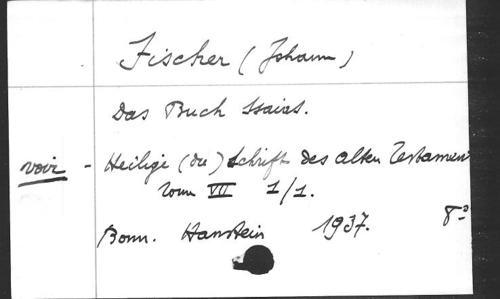 Fischer (Johann)
Das Buch Isaias.
voir - Heilige (die) Schrift des alten Testamen
Tom VII 1/1.
Bonn. Hanstein 1937. 8°